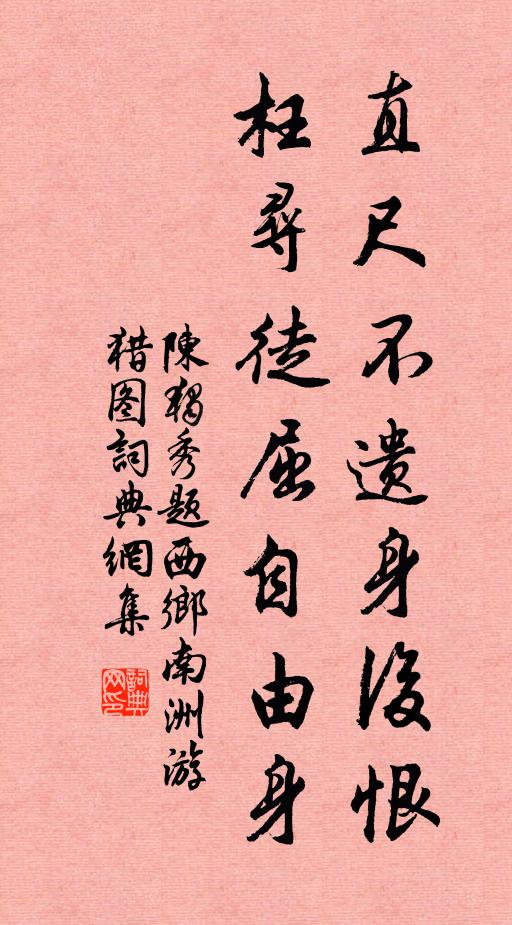 直尺不遗身後恨
枉尋徒屈自由身
陳獨秀题西鄉南洲游
猎图詞典網集
詞典网印